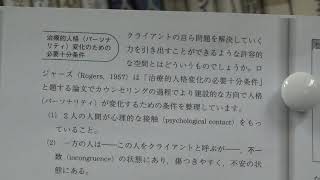 治療的人格（パーソナ
リティ）変化のための
必要十分条件
クライアントの自ら問題を解決していく
力を引き出すことができるような許容的
な空間とはどういうものでしょうか。ロ
ジャーズ（Rogers, 1957）は「治療的人格変化の必要十分条件」
と題する論文でカウンセリングの過程でより建設的な方向で人格
（パーソナリティ）が変化するための条件を整理しています。
(1) 2人の人間が心理的な接触（psychological contact）をもっ
ていること。
(2) 一方の人は――この人をクライアントと呼ぶが――、不一
致（incongruence）の状態にあり，傷つきやすく，不安の状
態にある。